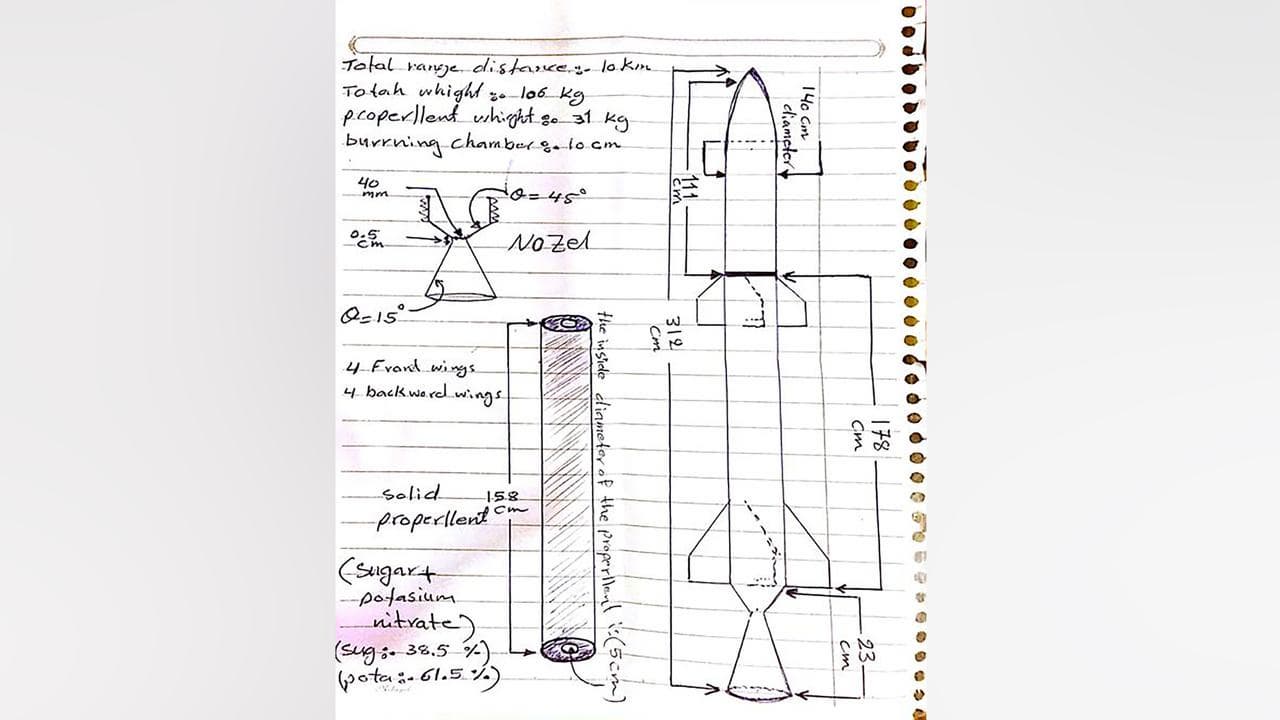 Total range distance :- 10 km
Totah whight :- 106 kg
properllent whight :- 31 kg
burrning chamber :- 10 cm
140 cm diameter
111 cm
40 mm
θ = 45°
0.5 cm
Nozel
θ = 15°
312 cm
178 cm
23 cm
4 Front wings
4 backword wings
158 cm
the inside diameter of the properllent is (5cm)
solid
properllent
(sugar +
potasium
nitrate)
(sug :- 38.5 %)
(pota :- 61.5 %)